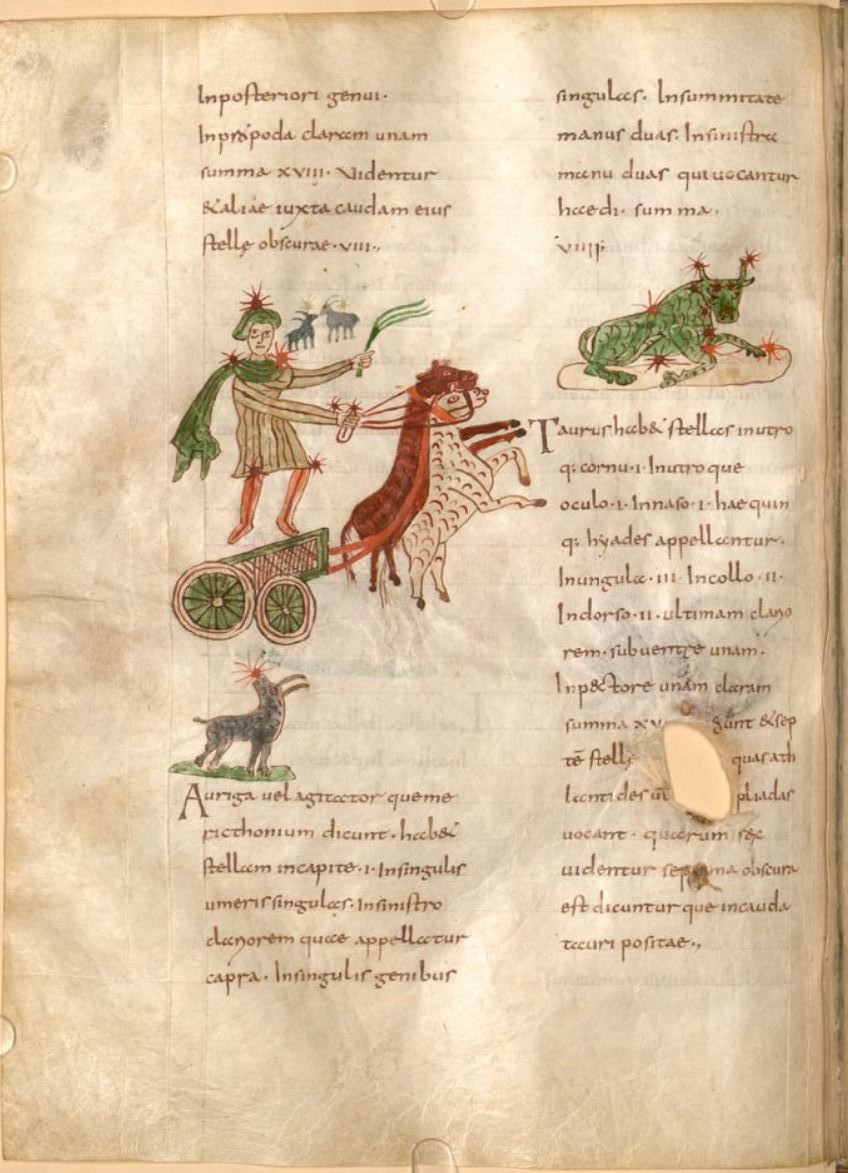 Inposteriori genui·
Inpriori poda claram unam
summa xviii· Videntur
&aliae iuxta caudam eius
stellę obscurae·viii·,
Auriga uel agitator queme
ricthonium dicunt· hab&
stellam incapite·i·Insingulis
umerissingulas·Insinistro
clariorem quae appellatur
capra· Insingulis genibus
singulas· Insummitate
manus duas· Insinistra
manu duas quiuocantur
haedi· summa·
viiii·
Taurus hab& stellas inutro
q: cornu·i· Inutroque
oculo·i·Innaso·i·haequin
q: hyades appellantur·
Inungula·iii·Incollo·ii·
Indorso·ii·ultimam clario
rem·subuentre unam·
Inp&tore unam claram
summa xv sunt &sep
tē stell quas ath
lantides pliadas
uocant· quarum sex
uidentur septima obscura
est dicuntur que incauda
tauri positae·,